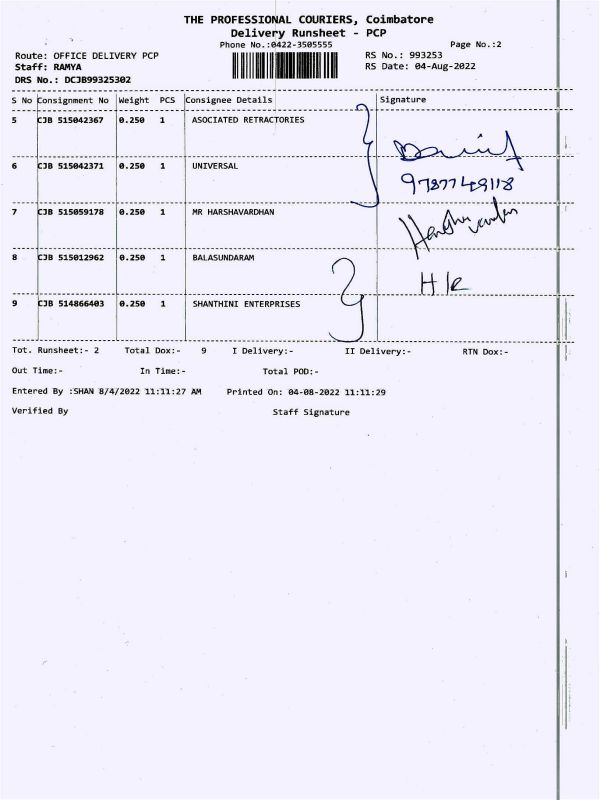 THE PROFESSIONAL COURIERS, Coimbatore
Delivery Runsheet - PCP
Phone No.:0422-3505555 Page No.:2
Route: OFFICE DELIVERY PCP RS No.: 993253
Staff: RAMYA RS Date: 04-Aug-2022
DRS No.: DCJB99325302
S No Consignment No Weight PCS Consignee Details Signature
5 CJB 515042367 0.250 1 ASOCIATED RETRACTORIES
6 CJB 515042371 0.250 1 UNIVERSAL
9787749118
7 CJB 515059178 0.250 1 MR HARSHAVARDHAN
8 CJB 515012962 0.250 1 BALASUNDARAM
9 CJB 514866403 0.250 1 SHANTHINI ENTERPRISES
Tot. Runsheet:- 2 Total Dox:- 9 I Delivery:- II Delivery:- RTN Dox:-
Out Time:- In Time:- Total POD:-
Entered By :SHAN 8/4/2022 11:11:27 AM Printed On: 04-08-2022 11:11:29
Verified By Staff Signature